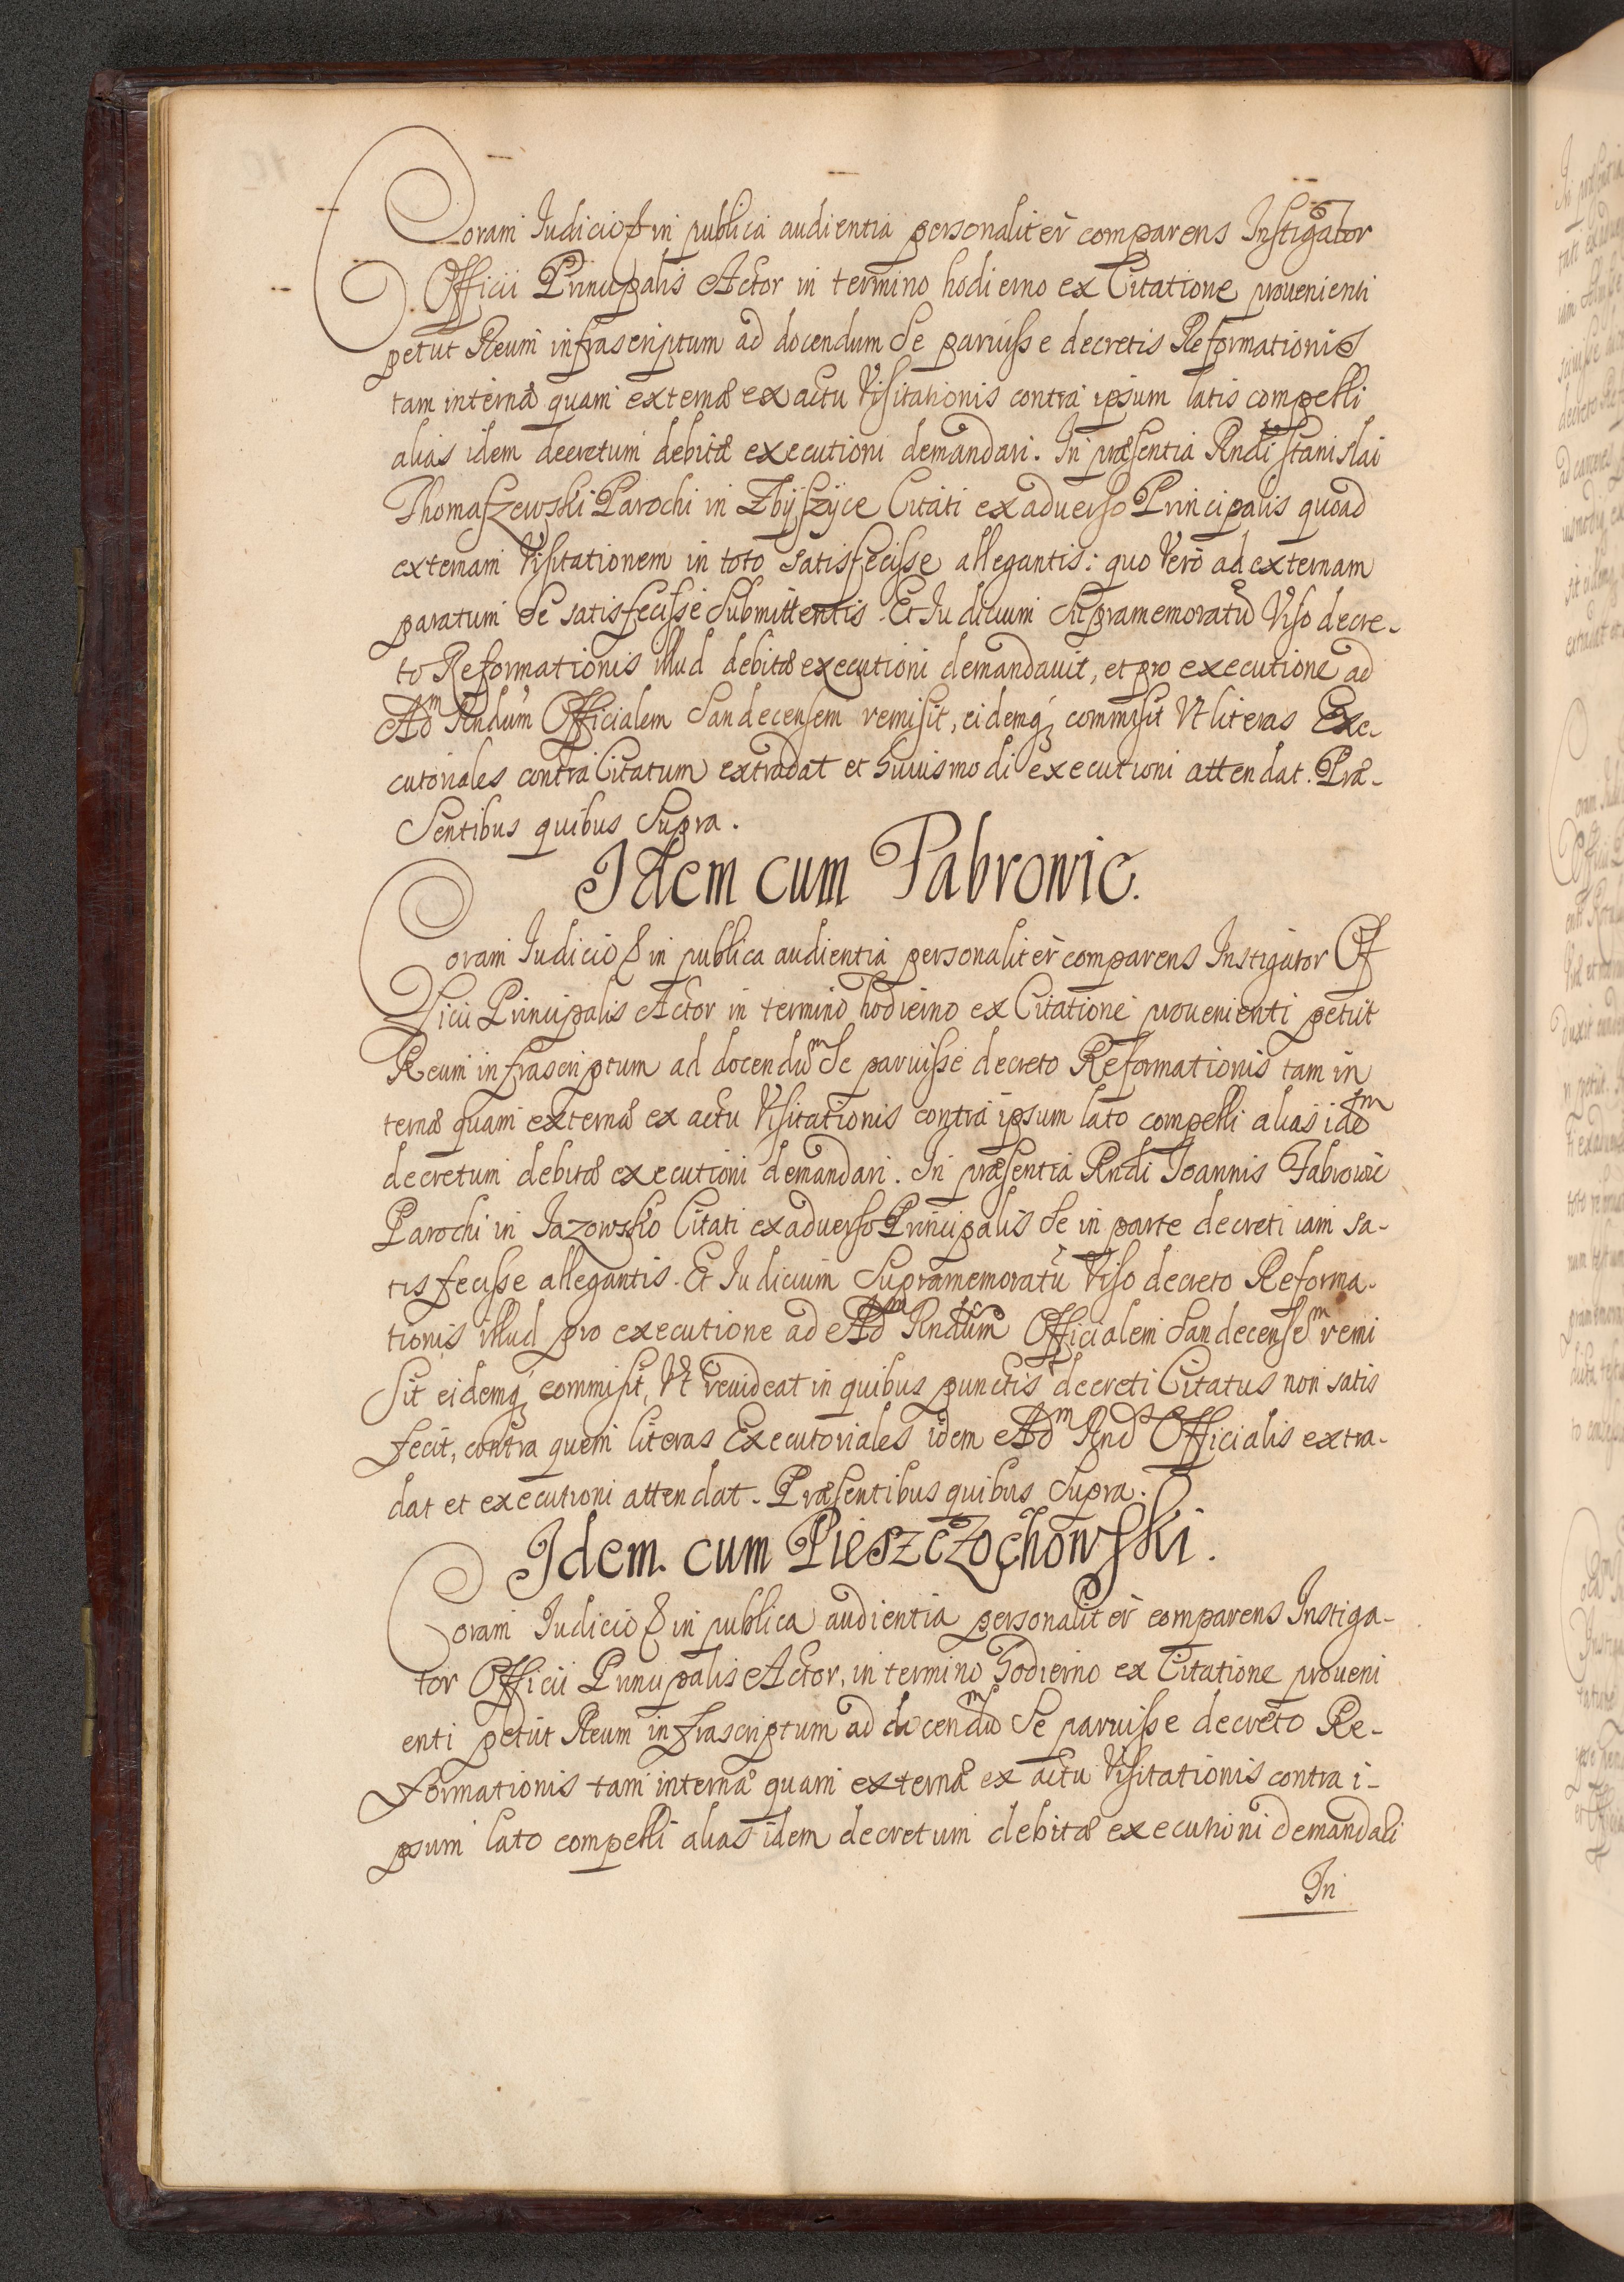 Coram Iudicio & in publica audientia personalitèr comparens Instigator
Officii Principalis Actor in termino hodierno ex Citatione prouenienti
petijt Reum infrascriptum ad docendum Se paruisse decretis Reformationis
tam internæ quam externæ ex actu Visitationis contra ipsum latis compelli
alias idem decretum debitæ executioni demandari. In præsentia Rndi Stanislai
Thomaszewski Parochi in Zbijszÿce Citati ex aduerso Principalis quoad
externam Visitationem in toto satisfecisse allegantis: quo Verò ad externam
paratum Se satisfecisse Submittentis. Et Iudicium Supramemoratũ Viso decre-
to Reformationis illud debitæ executioni demandauit, et pro executione ad
Adm Rndum Officialem Sandecensem remisit, eidemq; commisit Vt literas Exe-
cutoriales contra Citatum extradat et huiusmodi executioni attendat. Præ-
Sentibus quibus Supra.
Idem cum Fabrowic.
Coram Iudicio & in publica audientia personalitèr comparens Instigator Of
ficii Principalis Actor in termino hodierno ex Citatione prouenienti petijt
Reum infrascriptum ad docendum Se paruisse decreto Reformationis tam in
ternæ quam externæ ex actu Visitationis contra ipsum lato compelli alias idem
decretum debitæ executioni demandari. In præsentia Rndi Ioannis Fabrowic
Parochi in Jazowsko Citati ex aduerso Principalis Se in parte decreti iam sa-
tisfecisse allegantis. Et Iudicium Supramemoratũ Viso decreto Reforma-
tionis illud pro executione ad Adm Rndum Officialem Sandecensem remi
Sit eidemq; commisit, Vt reuideat in quibus punctis decreti Citatus non satis
fecit, contra quem literas Executoriales idem Adm Rnd Officialis extra-
dat et executioni attendat. Præsentibus quibus Supra.
Idem cum Pieszczochowski.
Coram Iudicio & in publica audientia personalitèr comparens Instiga-
tor Officii Principalis Actor, in termino hodierno ex Citatione proueni
enti petijt Reum infrascriptum ad docendum Se paruisse decreto Re-
formationis tam internæ quam externæ ex actu Visitationis contra i-
psum lato compelli alias idem decretum debitæ executioni demandari
In